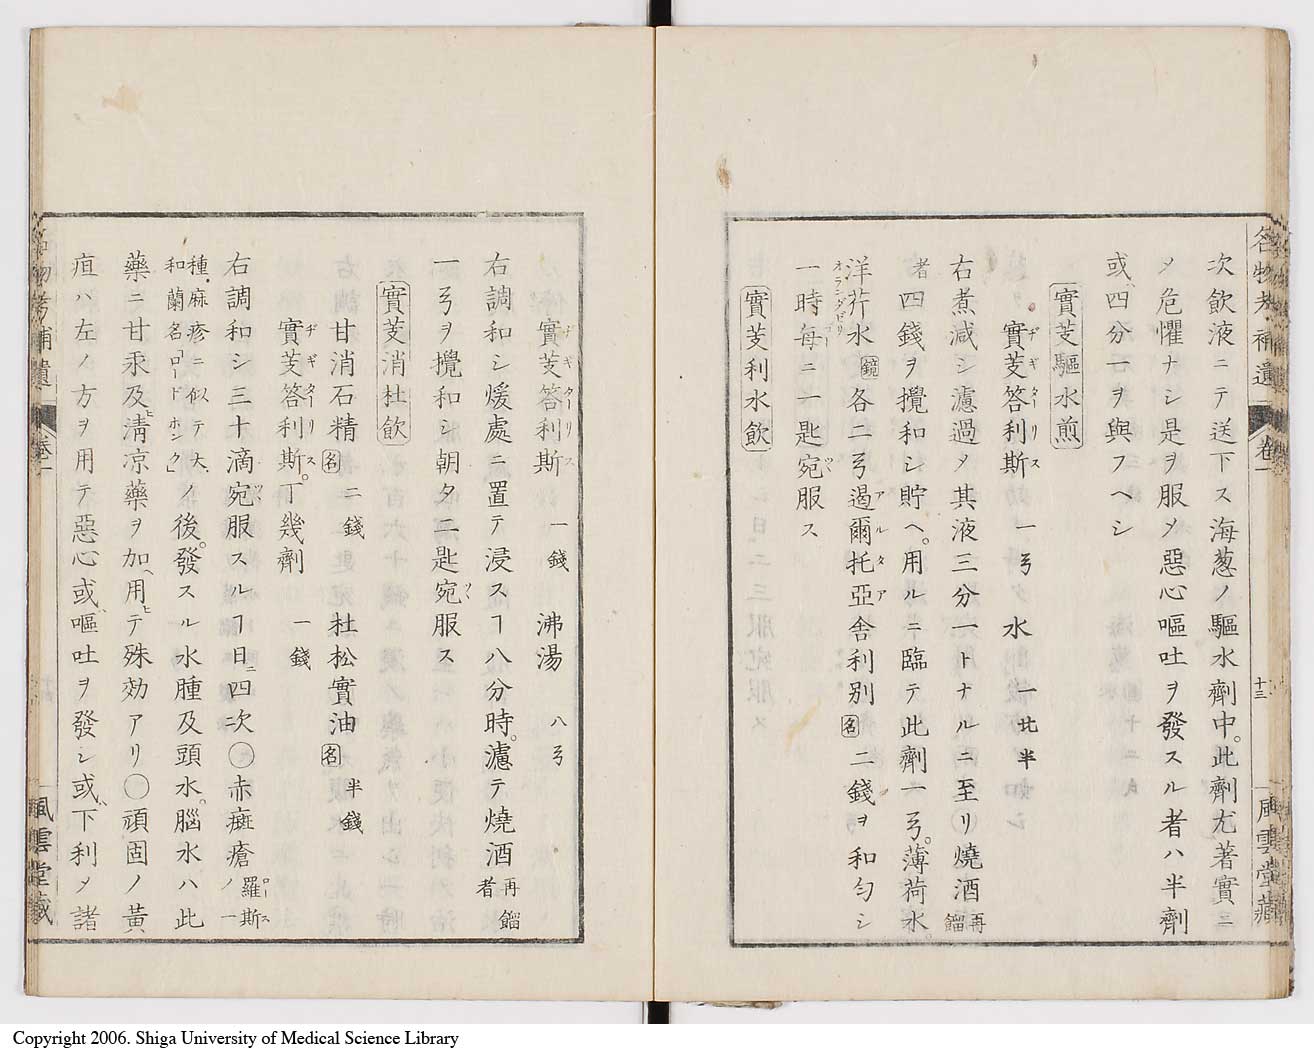 次飲液ニテ送下ス海葱ノ驅水劑中。此劑尤著實ニ
〆危懼ナシ是ヲ服〆惡心嘔吐ヲ發スル者ハ半劑
或ハ四分一ヲ與フヘシ
實芰驅水煎
實芰答利斯 一弓 水 一比半
ヂギターリス
右煮減シ濾過〆其液三分一トナルニ至リ燒酒再餾
者四錢ヲ攪和シ貯ヘ。用ルニ臨テ此劑一弓。薄荷水。
洋芹水 鏡 各二弓遏爾托亞舎利別 名 二錢ヲ和匀シ
アルタア
一時毎ニ一匙宛服ス
實芰利水飲
名物考補遺 卷一 十三 風雲堂藏
實芰答利斯 一錢 沸湯 八弓
ヂギターリス
右調和シ煖處ニ置テ浸スヿ八分時。濾テ燒酒再餾者
一弓ヲ攪和シ朝夕二匙宛服ス
實芰消杜飲
甘消石精 名 二錢 杜松實油 名 半錢
實芰答利斯。丁幾劑 一錢
ヂギターリス
右調和シ三十滴宛服スルヿ日ニ四次〇赤斑瘡ノ羅斯
ロース
一種麻疹ニ似テ大
和蘭名「ロードホンク」ノ後。發スル水腫及頭水。腦水ハ此
藥ニ甘汞及ヒ淸凉藥ヲ加ヘ用ヒテ殊効アリ〇頑固ノ黃
疸ハ左ノ方ヲ用テ惡心或ハ嘔吐ヲ發シ或ハ下利〆諸
名物考補遺 卷一 風雲堂藏
Copyright 2006. Shiga University of Medical Science Library